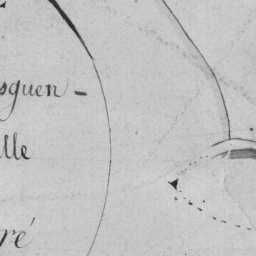 sguen-
lle
ré